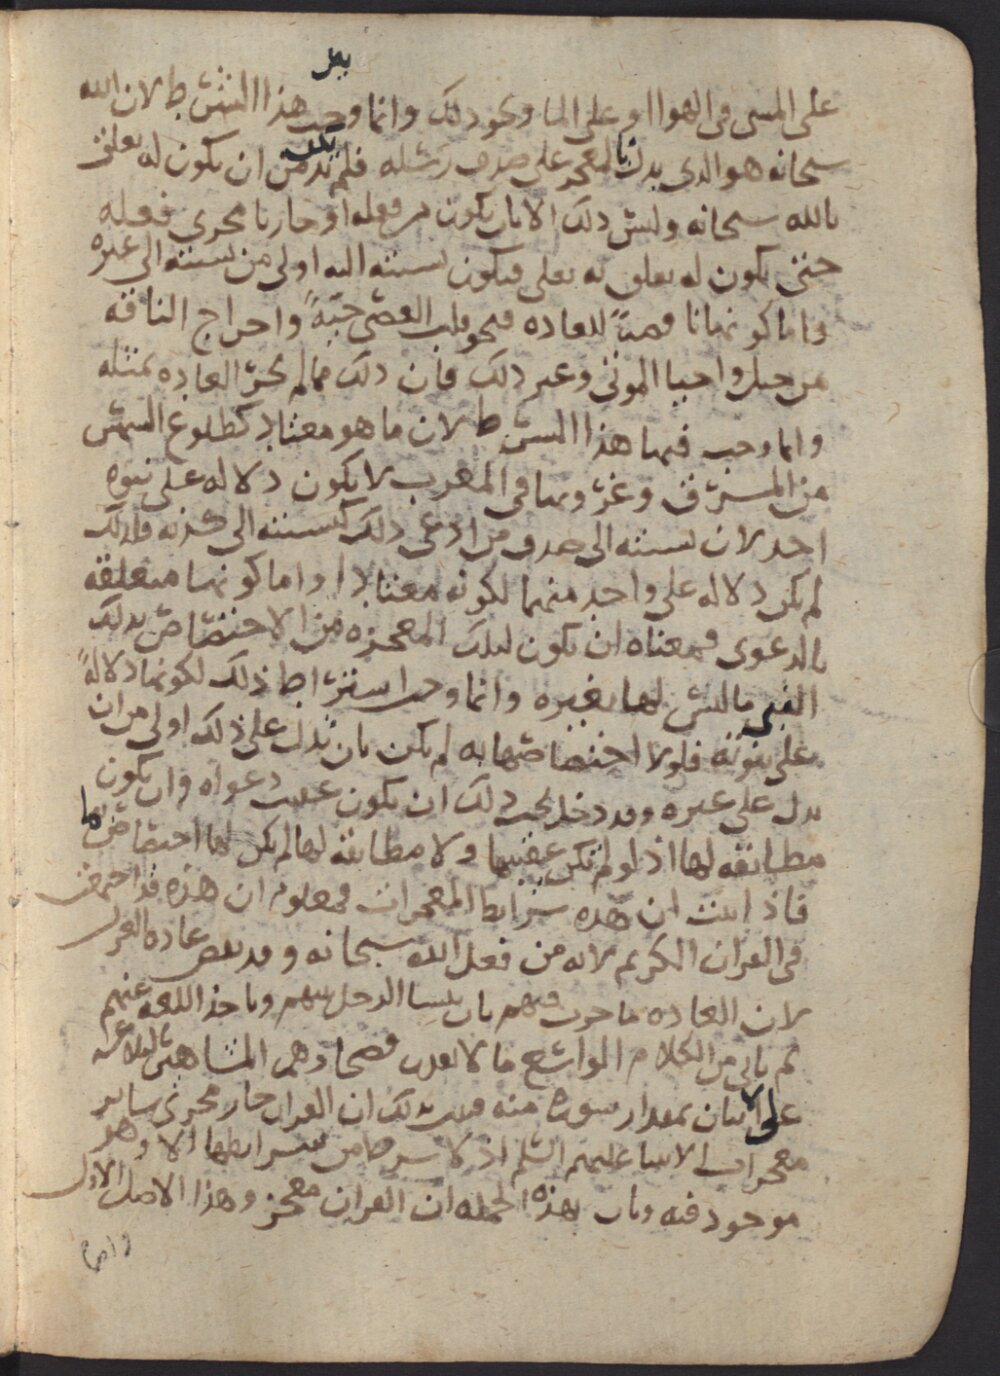 على المشي في الهوا او على الما ونحو ذلك وانما وجب هذا الشرط لان الله
سبحانه هو الذي يدل بالمعجز على صدق رسله فلم يكن بد من ان يكون له تعلق
بالله سبحانه وليس ذلك الا بان يكون من فعله او جاريا مجرى فعله
حتى يكون له تعلق به تعلى فيكون نسبته اليه اولى من نسبته الى غيره
واما كونها ناقضة للعاده فنحو قلب العصى حية واخراج الناقه
من جبل واحيا الموتى وغير ذلك فان ذلك مما لم تجر العاده بمثله
وانما وجب فيها هذا الشرط لان ما هو معتاد كطلوع الشمس
من المشرق وغروبها في المغرب لا يكون دلاله على نبوه
احد لان نسبته الى صدق من ادعى ذلك كنسبته الى كذبه فلذلك
لم يكن دلاله على واحد منهما لكونه معتادا واما كونها متعلقه
بالدعوى فمعناه ان يكون لتلك المعجزه من الاختصاص بذلك
النبي ما ليس لها بغيره وانما وجب اشتراط ذلك لكونها دلالة
على نبوته فلولا اختصاصها به لم يكن بان تدل على ذلك اولى من ان
تدل على غيره وقد دخل تحت ذلك ان يكون عقيب دعواه وان يكون
مطابقه لها اذ لو لم تكن عقيبها ولا مطابقه لها لم يكن لها اختصاص بها
فاذا ثبت ان هذه شرايط المعجزات فمعلوم ان هذه قد اجتمعت
في القران الكريم لانه من فعل الله سبحانه وقد نقض عاده العرب
لان العاده ما جرت فيهم بان ينشا الرجل بينهم وياخذ اللغه عنهم
ثم ياتي من الكلام الواسع ما لا يقدر فصحاوهم المتناهين في البلاغه
على الاتيان بمقدار سوره منه فثبت بذلك ان القران جار مجرى ساير
معجزات الانبيا عليهم السلم اذ لا شرط من شرايطها الا وهو
موجود فيه وبان بهذه الجمله ان القران معجز وهذا الاصل الاول